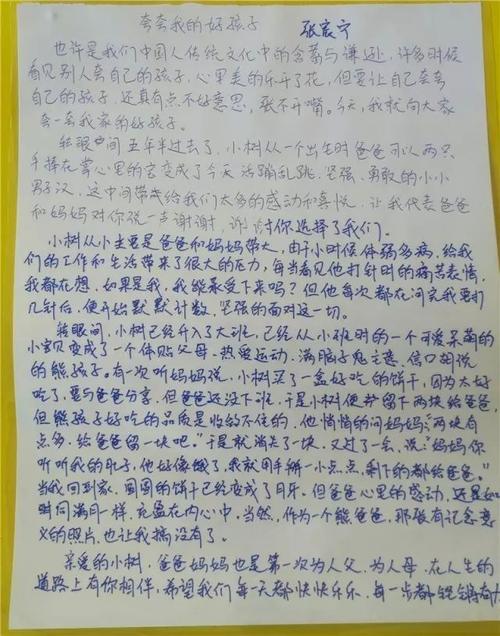 夸夸我的好孩子 张宸宁
也许是我们中国人传统文化中的含蓄与谦逊,许多时候
看见别人夸自己的孩子,心里美的乐开了花,但要让自己夸夸
自己的孩子,还真有点不好意思,张不开嘴。今天,我就向大家
夸一夸我家的好孩子。
转眼间五年半过去了,小树从一个出生时爸爸可以两只
手捧在掌心里的宝变成了今天活蹦乱跳、坚强、勇敢的小小
男子汉,这中间带给我们太多的感动和喜悦,让我代表爸爸
和妈妈对你说一声谢谢,谢谢你选择了我们。
小树从小主要是爸爸和妈妈带大,由于小时候体弱多病,给我
们的工作和生活带来了很大的压力,每当看见他打针时的痛苦表情,
我都在想,如果是我,我能承受下来吗?但他每次都在问完我要打
几针后,便开始默默计数,坚强的面对这一切。
转眼间,小树已经升入了大班,已经从小班时的一个可爱呆萌的
小宝贝变成了一个体贴父母、热爱运动、满脑子鬼主意、信口胡说
的熊孩子。有一次听妈妈说,小树买了一盒好吃的饼干,因为太好
吃了,要与爸爸分享,但爸爸还没下班,于是小树便留下两块给爸爸,
但熊孩子好吃的品质是收敛不住的,他悄悄的问妈妈:“两块有
点多,给爸爸留一块吧。”于是就消失了一块,又过了一会,说:“妈妈你
听听我的肚子,他好像饿了,我就用手掰一小点点,剩下的都给爸爸。”
当我回到家,圆圆的饼干已经变成了月牙。但爸爸心里的感动,还是如
时同满月一样,充盈在内心中,当然,作为一个熊爸爸,那张有记念意
义的照片,也让我搞没有了。
亲爱的小树,爸爸妈妈也是第一次为人父、为人母,在人生的
道路上有你相伴,希望我们每一天都快快乐乐,每一步都铿锵有力